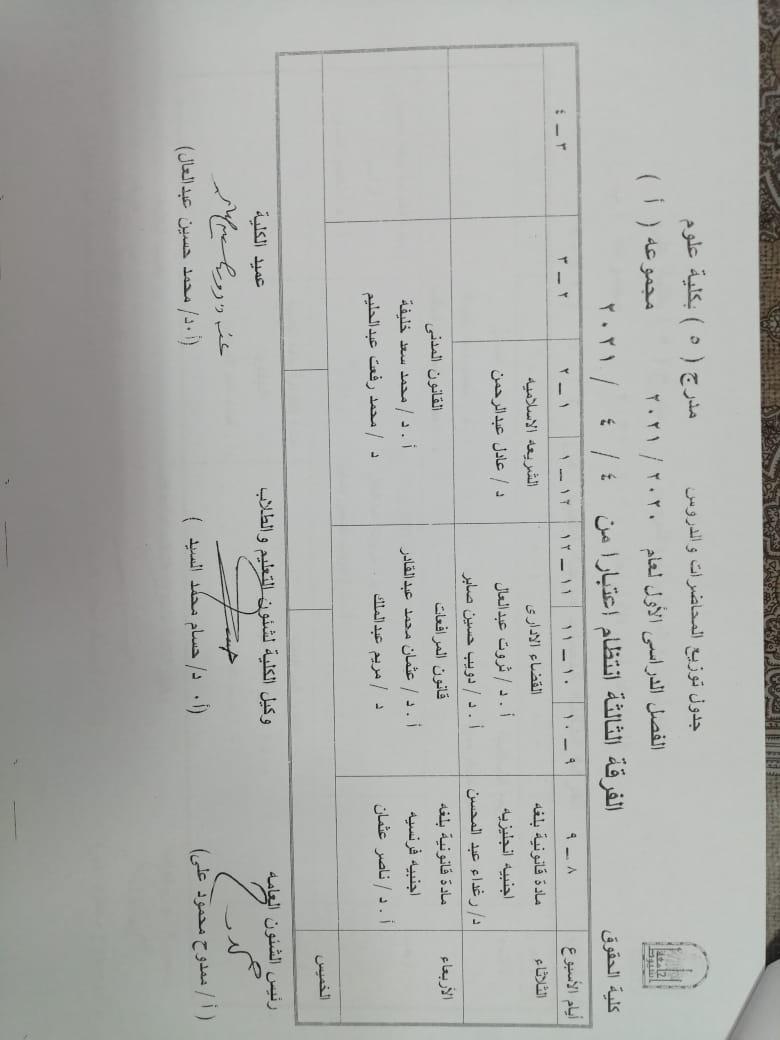 جامعة أسيوط
كلية الحقوق
جدول توزيع المحاضرات والدروس مدرج ( ٥ ) بكلية علوم
الفصل الدراسى الأول لعام ٢٠٢٠ / ٢٠٢١ مجموعه ( أ )
الفرقة الثالثة انتظام اعتبارا من ٤ / ٤ / ٢٠٢١
أيام الأسبوع ٨ – ٩ ٩ – ١٠ ١٠ – ١١ ١١ – ١٢ ١٢ – ١ ١ – ٢ ٢ – ٣ ٣ – ٤
الثلاثاء
مادة قانونية بلغه
اجنبيه انجليزيه
د/ رغداء عبد المحسن
القضاء الادارى
أ . د / ثروت عبدالعال
أ . د / دويب حسين صابر
الشريعه الاسلاميه
د / عادل عبدالرحمن
الأربعاء
مادة قانونية بلغه
اجنبيه فرنسيه
أ . د / ناصر عثمان
قانون المرافعات
أ . د / عثمان محمد عبدالقادر
د / مريم عبدالملك
القانون المدنى
أ . د / محمد سعد خليفة
د / محمد رفعت عبدالحليم
الخميس
رئيس الشئون العامه وكيل الكلية لشئون التعليم والطلاب عميد الكلية
( أ / ممدوح محمود على) (أ٠ د/ حسام محمد السيد ) (أ٠د/ محمد حسين عبدالعال)